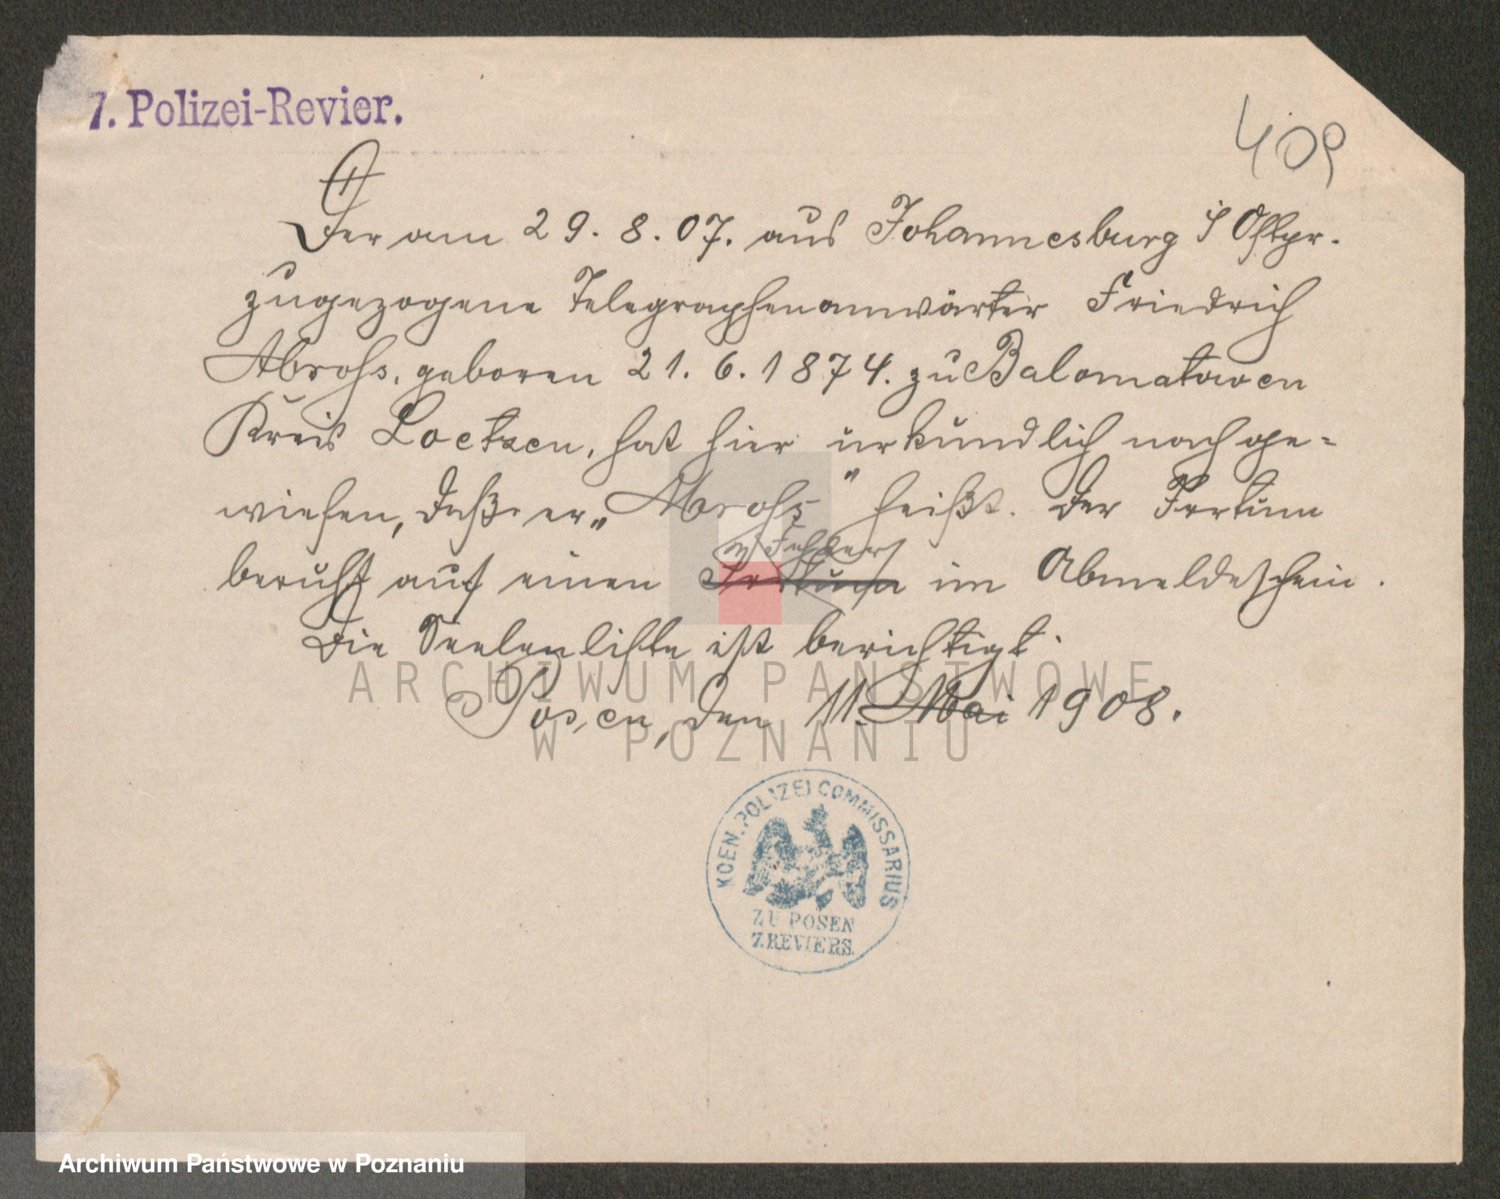 7. Polizei-Revier.
409
Der am 29. 8. 07. aus Johannesburg i/Ostpr.
zugezogene Telegraphenanwärter Friedrich
Abrohs, geboren 21. 6. 1874. zu Balamutowen
Kreis Loetzen, hat hier urkundlich nachge=
wiesen, daß er „Abrohs" heißt. Der Irrtum
Fehler
beruht auf einen Irrtum im Abmeldeschein.
Die Seelenliste ist berichtigt.
Posen, den 11. Mai 1908.
KOEN. POLIZEI COMMISSARIUS
ZU POSEN
7. REVIERS.
ARCHIWUM PAŃSTWOWE
W POZNANIU
Archiwum Państwowe w Poznaniu